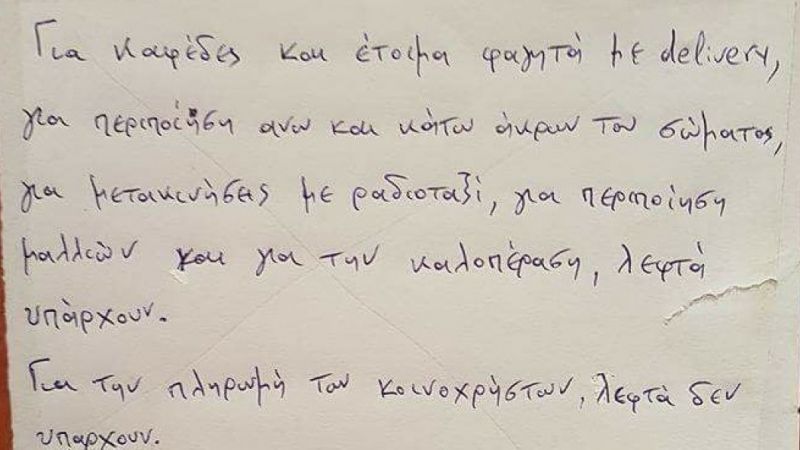 Για καφέδες και έτοιμα φαγητά με delivery,
για περιποίηση ανω και κάτω άκρων του σώματος,
για μετακινήσεις με ραδιοταξί, για περιποίηση
μαλλιών και για την καλοπέραση, λεφτά
υπάρχουν.
Για την πληρωμή των κοινοχρήστων, λεφτά δεν
υπαρχουν.